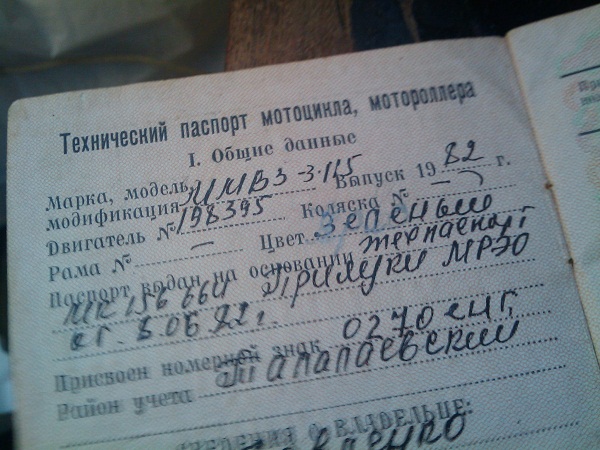 Технический паспорт мотоцикла, мотороллера
I. Общие данные
Марка, модель,
модификация ММВЗ-3.115 Выпуск 1982 г.
Двигатель № 198395 Коляска № —
Рама № — Цвет зеленый
Паспорт выдан на основании техпаспорт
МК 156664 Прилуки МРЭО
от 8.06.92г.
Присвоен номерной знак 0270
Район учета